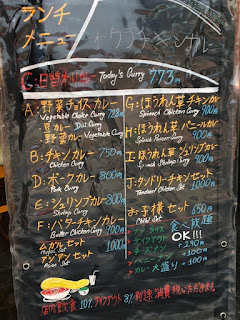 ランチ
メニュー オクラチキンカレー
C: 日替わりカレー Today's Curry 773円
A: 野菜チョイスカレー
Vegetable Choice Curry 728円
豆カレー Dal Curry
野菜カレー Vegetable Curry
B: チキンカレー 750円
Chicken Curry
D: ポークカレー 800円
Pork Curry
E: シュリンプカレー 800円
Shrimp Curry
F: バターチキンカレー 900円
Butter Chicken Curry
ムカルセット 1000円
アンテンセット
G: ほうれん草チキンカレー
Spinach Chicken Curry 900円
H: ほうれん草パニールカレー
Spinach Paneer Curry 900円
I: ほうれん草シュリンプカレー
Spinach Shrimp Curry 900円
J: タンドリーチキンセット
Tandoori Chicken Set 1000円
お子様セット 650円
ナン ライス 食べ放題
テイクアウト OK!!!
+290円
+100円
カレー大盛り +100円
店内飲食 10% テイクアウト 8% 別途 消費税